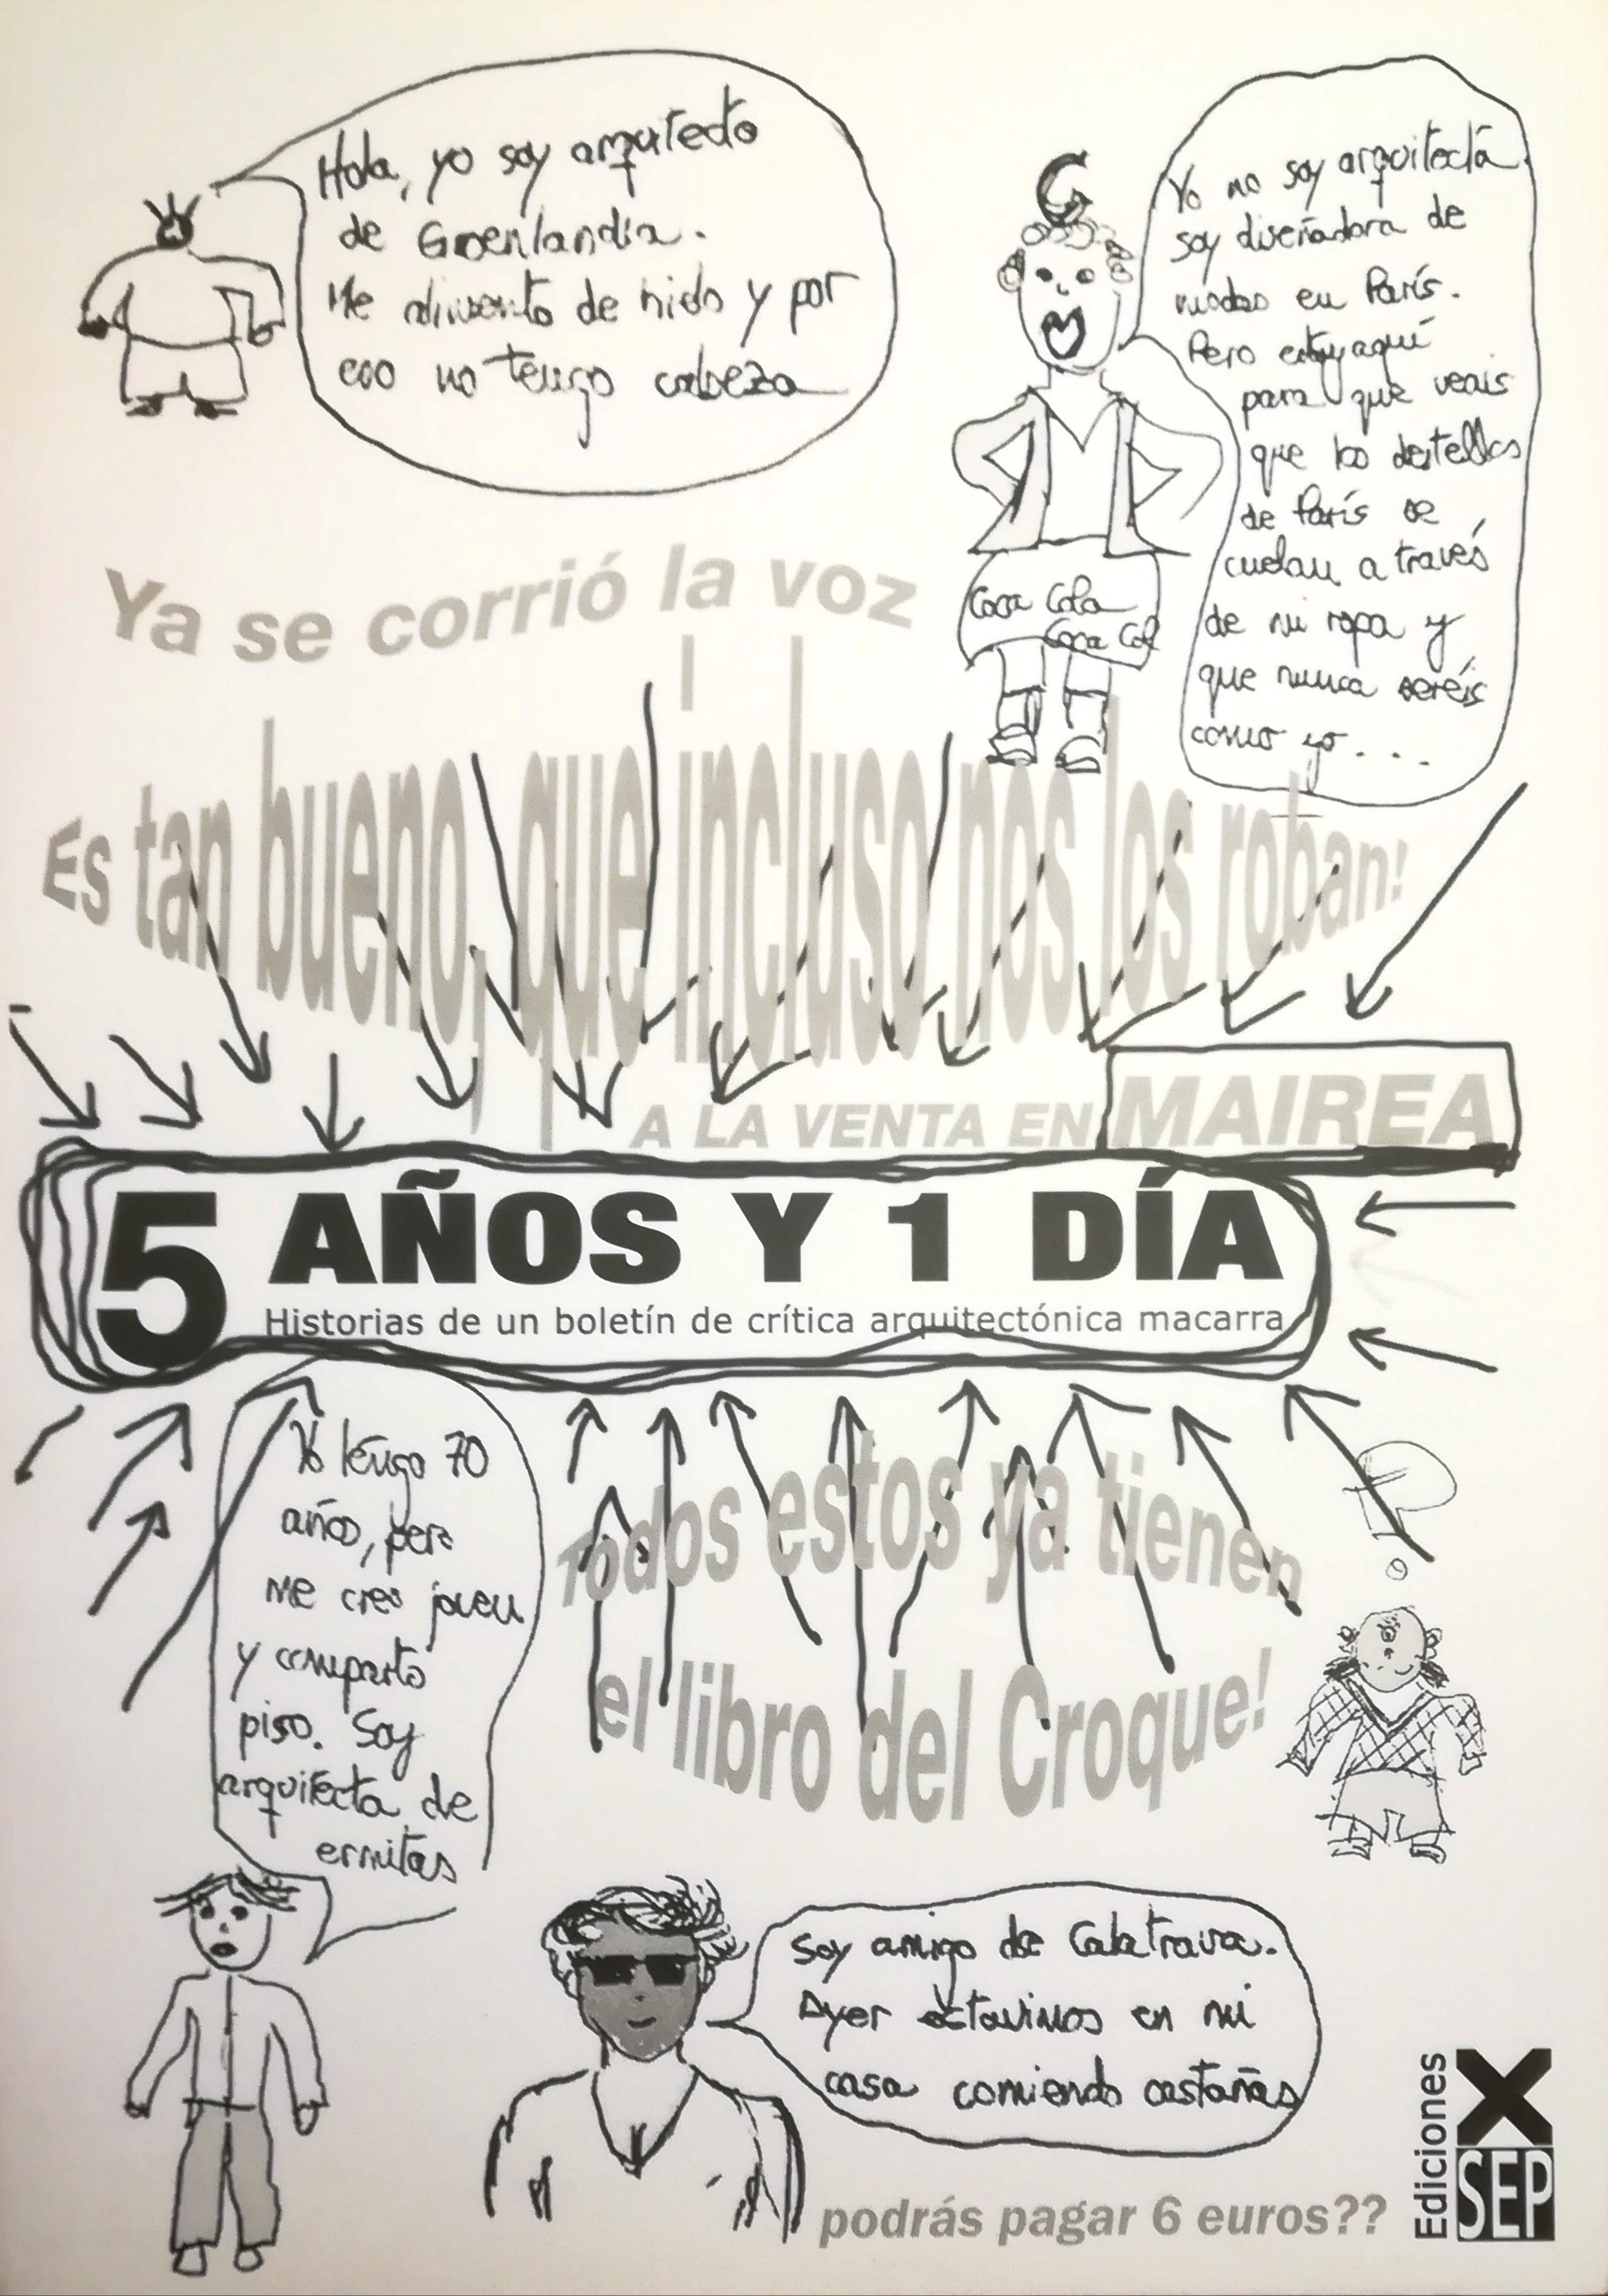 Hola, yo soy arquitecto
de Groenlandia.
Me alimento de hielo y por
eso no tengo cabeza
Yo no soy arquitecta
soy diseñadora de
modas en París.
Pero estoy aquí
para que veais
que los destellos
de París se
cuelan a través
de mi ropa y
que nunca seréis
como yo...
Coca Cola
Coca Col
Ya se corrió la voz
Es tan bueno, que incluso nos los roban!
A LA VENTA EN MAIREA
5 AÑOS Y 1 DÍA
Historias de un boletín de crítica arquitectónica macarra
Yo tengo 70
años, pero
me creo joven
y comparto
piso. Soy
arquitecta de
ermitas
Todos estos ya tienen
el libro del Croque!
Soy amigo de Calatrava.
Ayer estuvimos en mi
casa comiendo castañas
podrás pagar 6 euros??
Ediciones
X
SEP